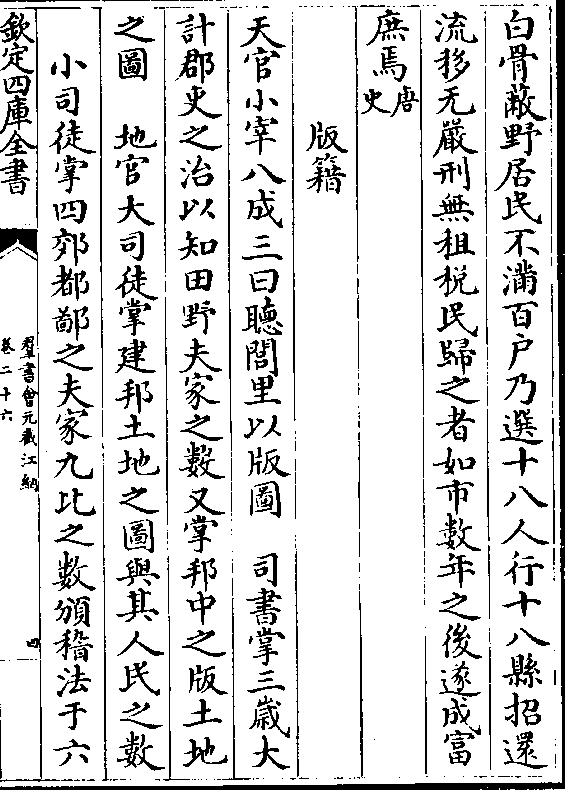 白骨蔽野居民不滿百户乃選十八人行十八縣招還
流移无嚴刑無租税民歸之者如市數年之後遂成富
庶焉唐史
版籍
天官小宰八成三曰聽閭里以版圖　司書掌三歲大
計郡吏之治以知田野夫家之數又掌邦中之版土地
之圖　地官大司徒掌建邦土地之圖與其人民之數
小司徒掌四郊都鄙之夫家九比之數頒稽法于六
欽定四庫全書
羣書會元截江網
卷二十六
四